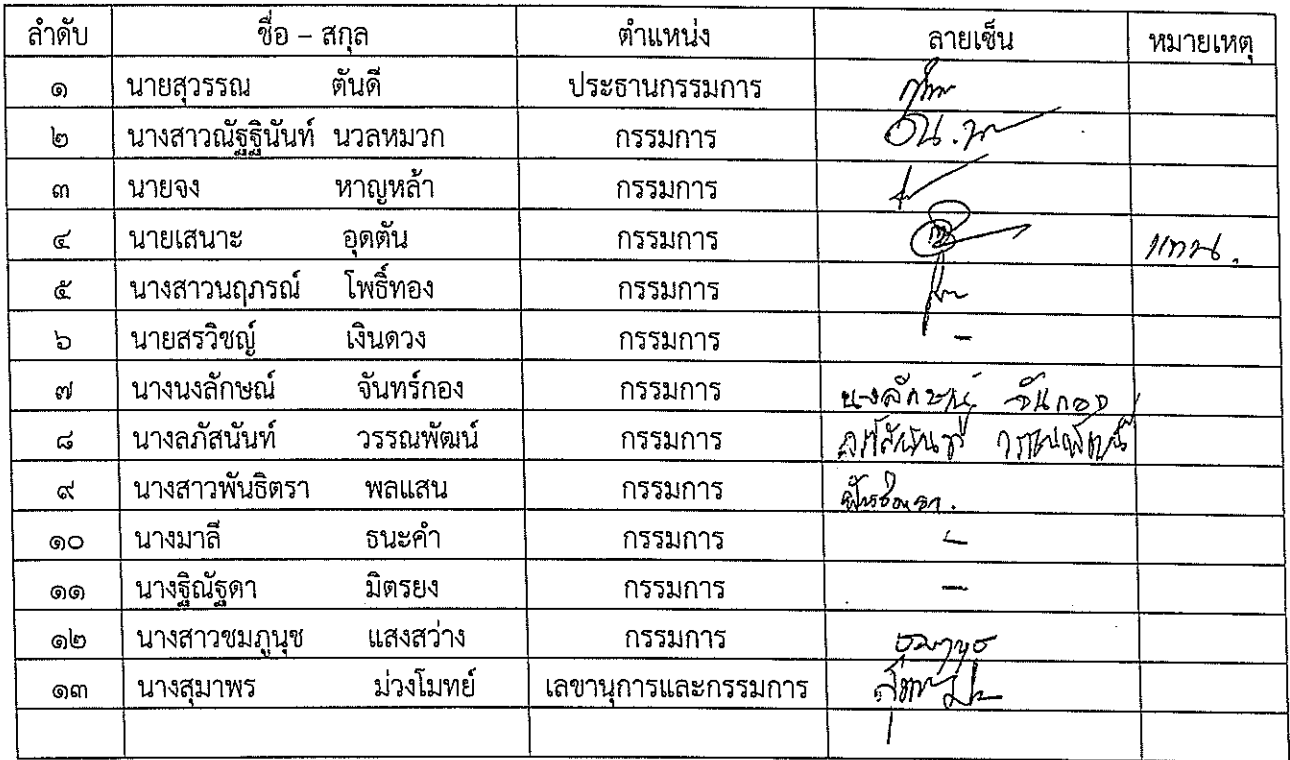 ลำดับ ชื่อ – สกุล ตำแหน่ง ลายเซ็น หมายเหตุ
๑ นายสุวรรณ ตันดี ประธานกรรมการ
๒ นางสาวณัฐฐินันท์ นวลหมวก กรรมการ
๓ นายจง หาญหล้า กรรมการ
๔ นายเสนาะ อุดตัน กรรมการ แทน.
๕ นางสาวนฤภรณ์ โพธิ์ทอง กรรมการ
๖ นายสรวิชญ์ เงินดวง กรรมการ –
๗ นางนงลักษณ์ จันทร์กอง กรรมการ นงลักษณ์
๘ นางลภัสนันท์ วรรณพัฒน์ กรรมการ ลภัสนันท์ วรรณพัฒน์
๙ นางสาวพันธิตรา พลแสน กรรมการ พันธิตรา.
๑๐ นางมาลี ธนะคำ กรรมการ –
๑๑ นางฐิณัฐดา มิตรยง กรรมการ –
๑๒ นางสาวชมภูนุช แสงสว่าง กรรมการ
๑๓ นางสุมาพร ม่วงโมทย์ เลขานุการและกรรมการ